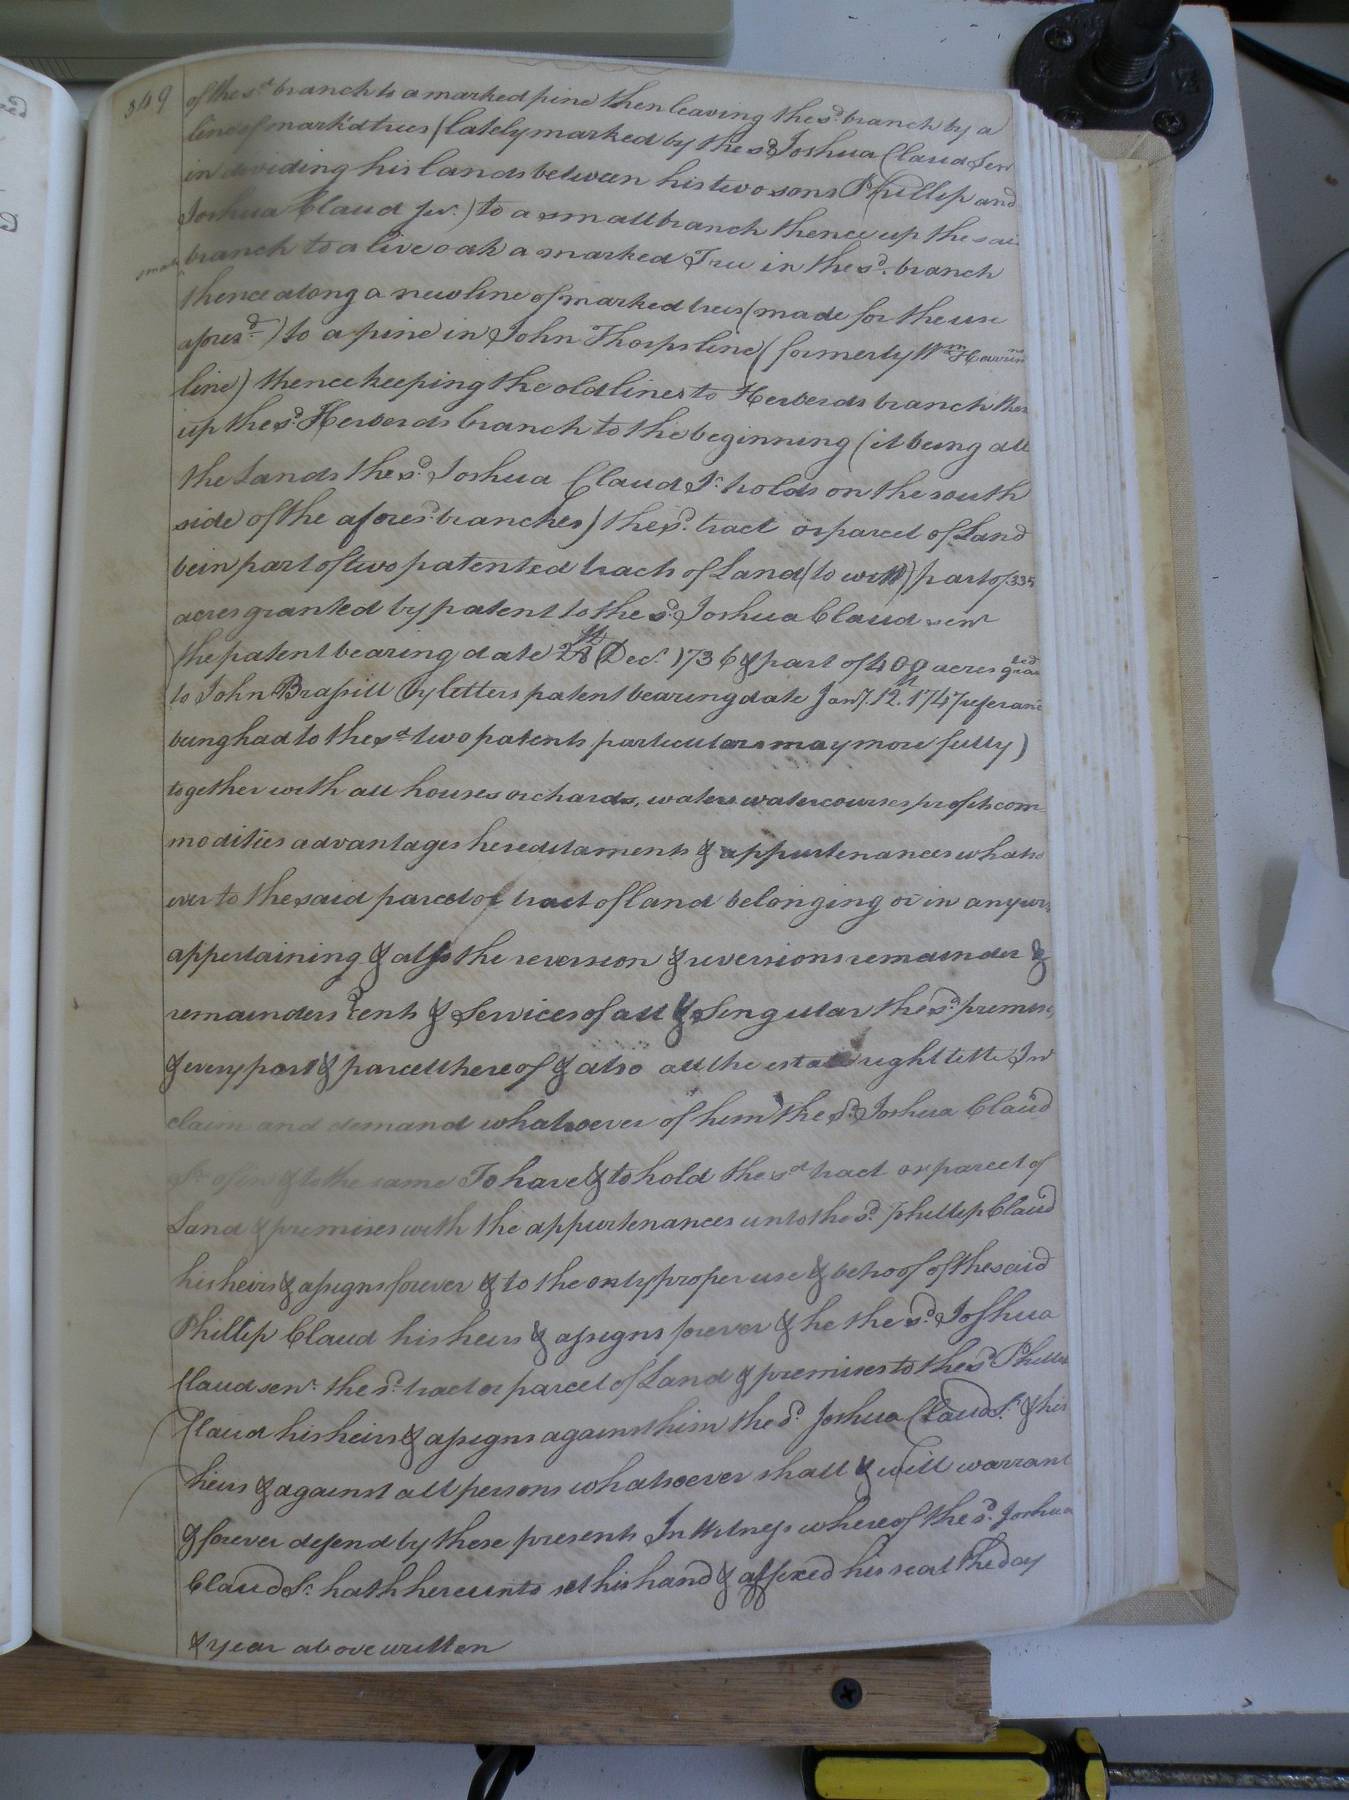 349
of the sd branch to a marked pine then leaving the sd branch by a
line of markd trees (lately marked by the sd Joshua Claud Senr
in deviding his lands between his two sons Phillip and
Joshua Claud Jur.) to a small branch thence up the sai
small branch to a live oak a marked Tree in the sd. branch
thence along a new line of marked trees (made for the use
aforesd.) to a pine in John Thorps line (formerly Wm
line) thence keeping the old lines to Herberds branch then
up the sd. Herberds branch to the beginning (it being all
the Lands the sd. Joshua Claud Sr. holds on the south
side of the afores.d branches) the sd. tract or parcel of Land
bein part of two patented tracts of Land (to witt) part of 335
acres granted by patent to the sd. Joshua Claud senr
the patent bearing date 28th Decr. 1736 & part of 400 acres granted
to John Brassill by letters patent bearing date Jany. 12th. 1747 referanc
being had to the sd two patents particulars may more fully)
together with all houses orchards, waters watercourses profits com
modities advantages hereditaments & appurtenances whatso
ever to the said parcel or tract of land belonging or in any wis
appertaining & also the reversion & reversions remainder &
remainders rents & Services of all & Singular the sd. premises
& every part & parcel thereof & also all the estate right title In
claim and demand whatsoever of him the sd. Joshua Claud
Sr. of in & to the same To have & to hold the sd tract or parcel of
Land & premises with the appurtenances unto the sd. Phillip Claud
his heirs & assigns forever & to the only proper use & behoof of the said
Phillip Claud his heirs & assigns forever & he the sd. Joshua
Claud senr. the sd. tract or parcel of Land & premises to the sd. Phillip
Claud his heirs & assigns against him the sd. Joshua Claud Sr. & his
heirs & against all persons whatsoever shall & will warrant
& forever defend by these presents In Witness whereof the sd. Joshua
Claud Sr. hath hereunto set his hand & affixed his seal the day
& year above written